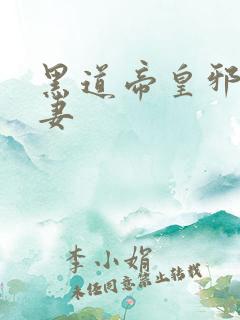 黑道帝皇邪
妻
李小娟
未经同意禁止转载